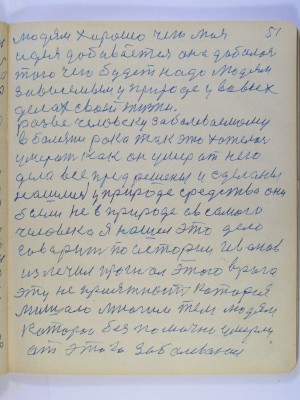 людям хорошо чего моя 51
идея добивается она добилася
того чего будет надо людям
зависемым у природе у во всех
делах своей жизни.
разве человеку заболеваемому
в болезни рака так это хотелося
умерат как он умер от него
дела все предрешены и сделаны
нашлися у природе средства они
были не в природе а в самого
человека я нашел это дело
говарит по истории Иванов
излечил прогнал этого врага
эту не приятность которая
мишало многим тем людям
которые без помачно умерли
от этого заболевания